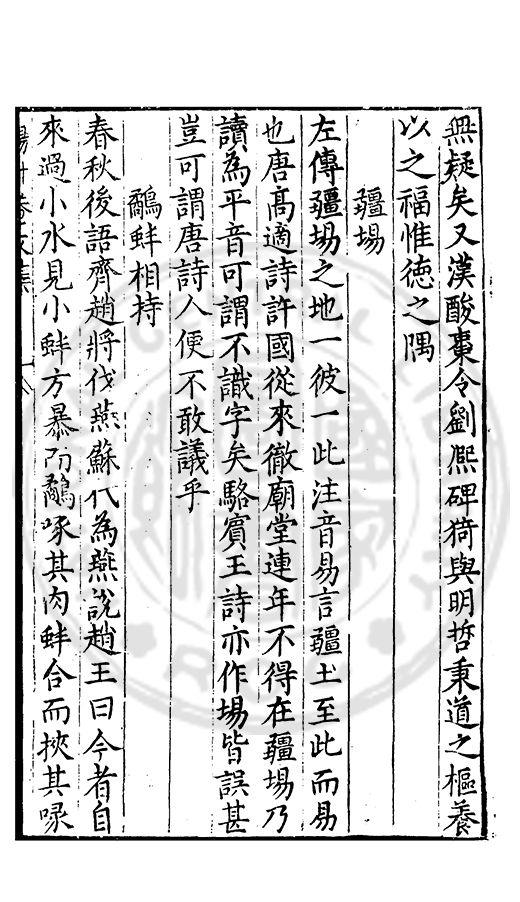 無疑矣又漢酸棗令劉熈碑猗與明哲秉道之樞養
以之福惟徳之隅
疆場
左傳疆埸之地一彼一此注音易言疆土至此而易
也唐高適詩許國從來徹廟堂連年不得在疆場乃
讀為平音可謂不識字矣駱賓王詩亦作場皆誤甚
豈可謂唐詩人便不敢議乎
鷸蚌相持
春秋後語齊趙將伐燕蘇代為燕説趙王曰今者自
來過小水見小蚌方暴而鷸啄其肉蚌合而挾其喙